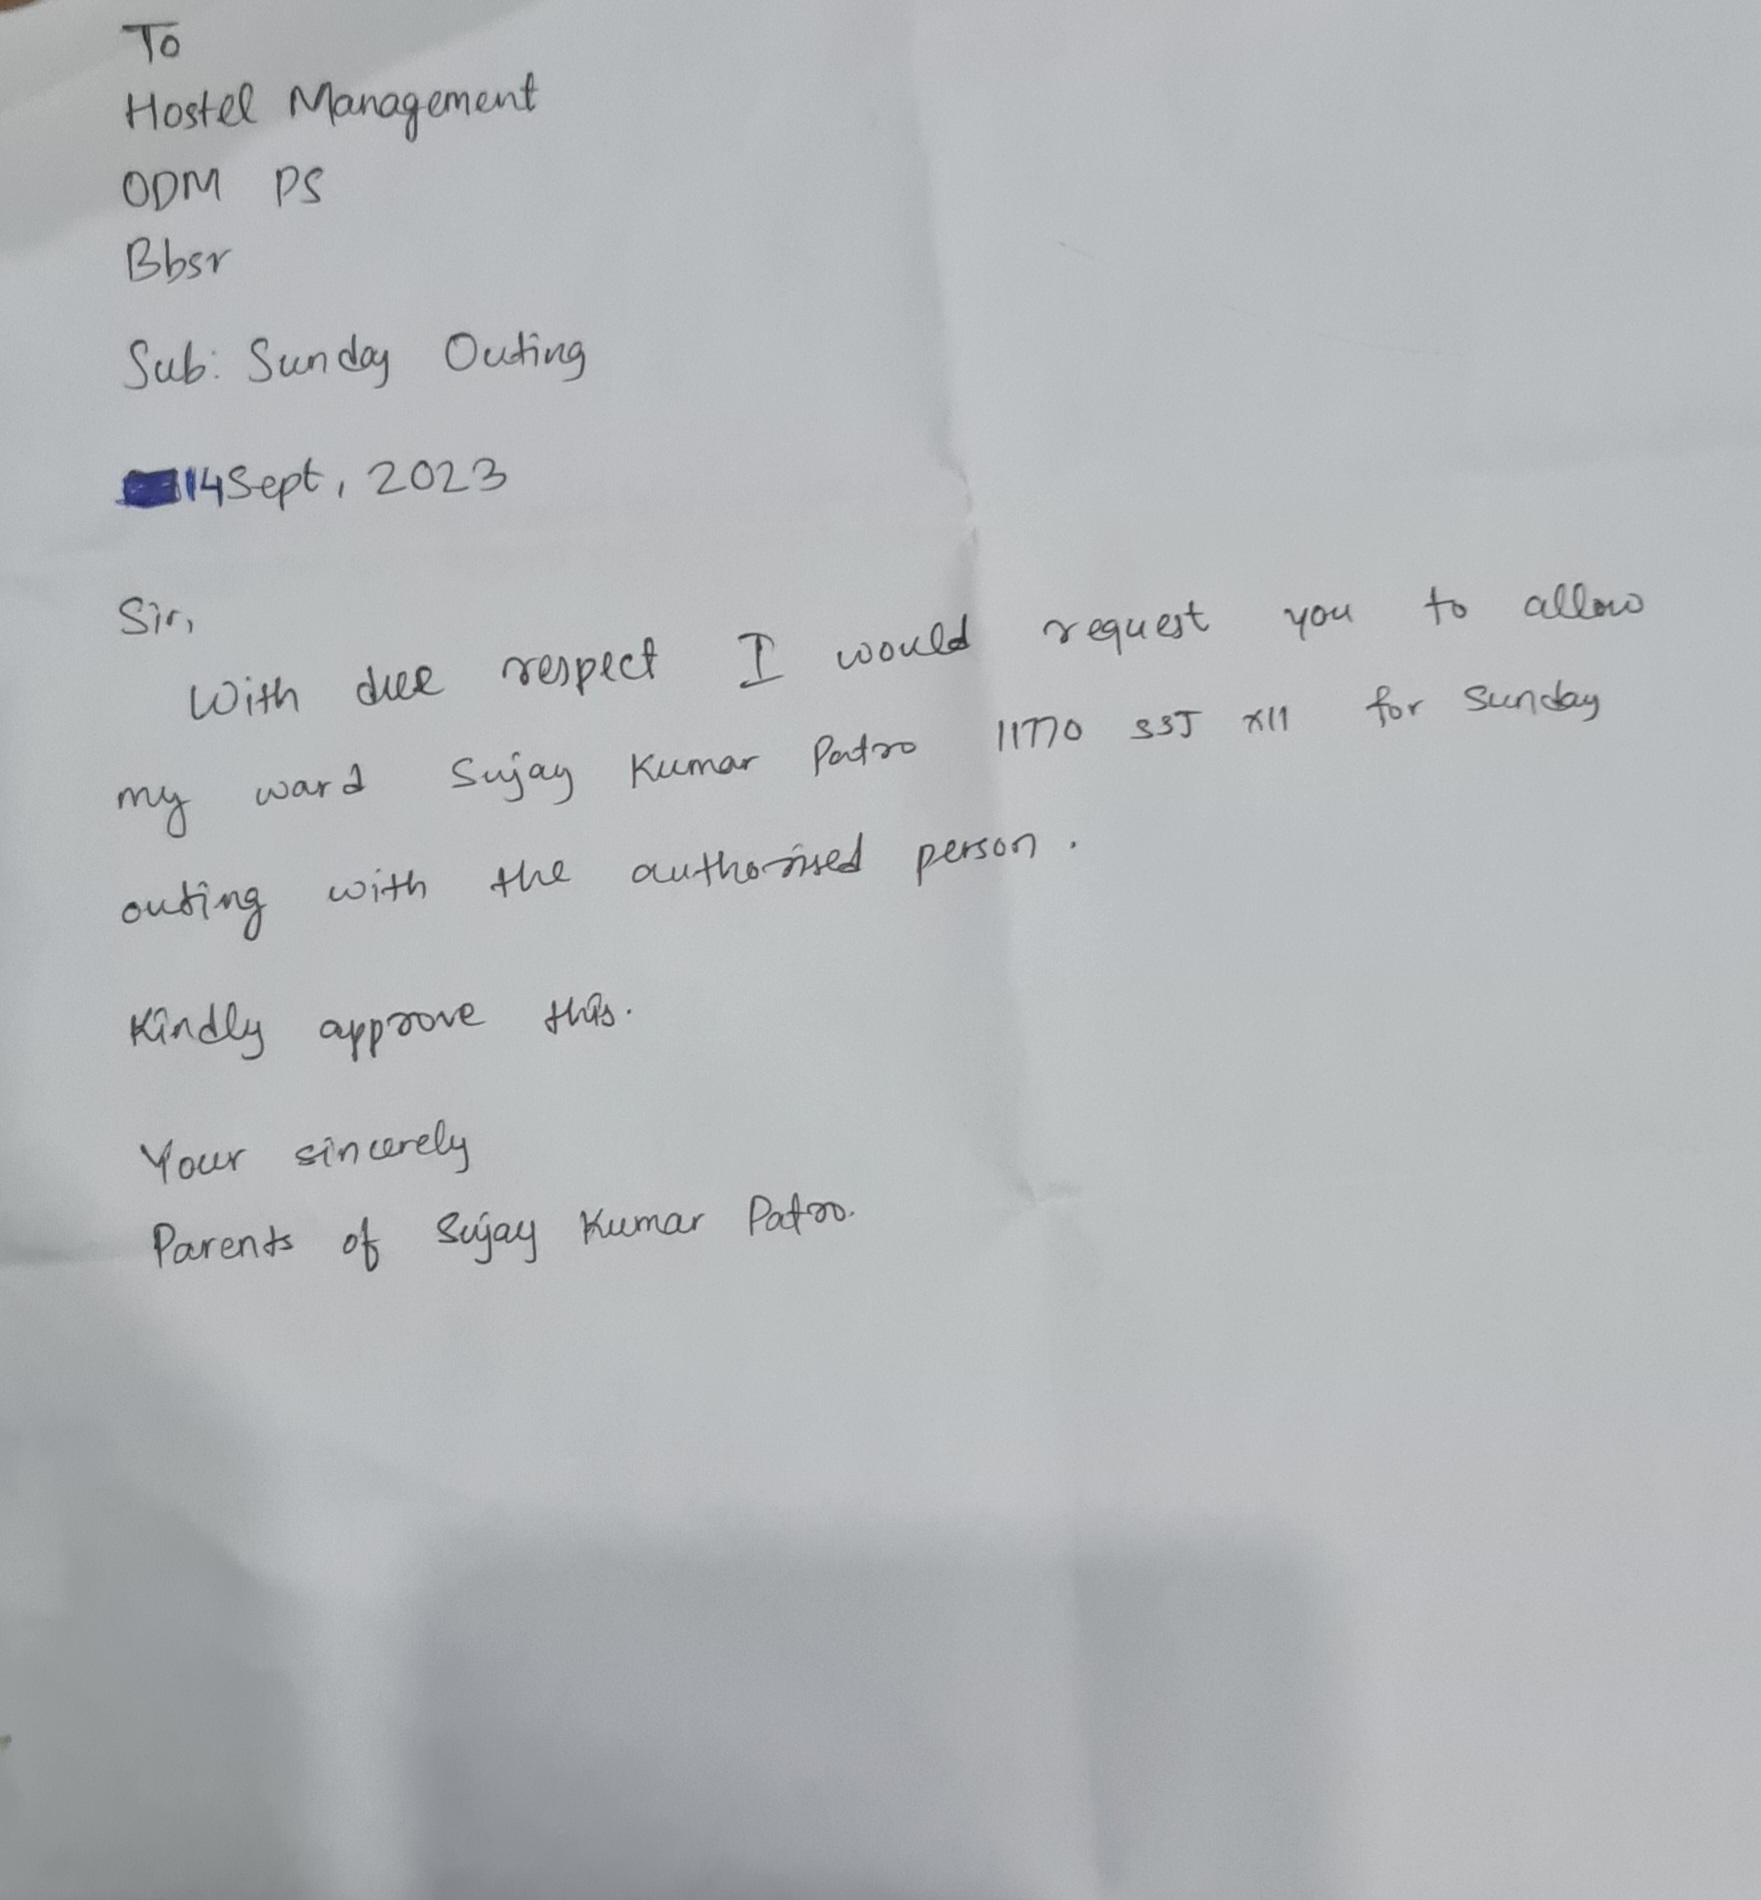 To
Hostel Management
ODM PS
Bbsr
Sub: Sunday Outing
14 Sept, 2023
Sir,
With due respect I would request you to allow
my ward Sujay Kumar Patro 11770 SSJ XII for Sunday
outing with the authorised person.
Kindly approve this.
Your sincerely
Parents of Sujay Kumar Patro.